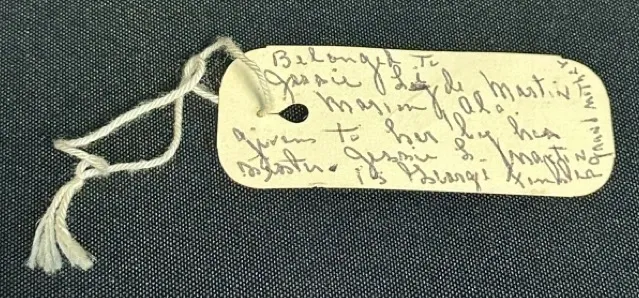 Belonged To
Jessie Lyde Martin
Marion, Ala.
given to her by her
sister. Jessie L. Martin
is George
GRAND MOTHER